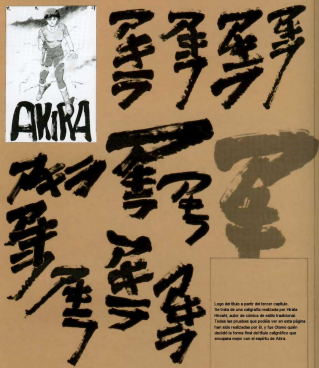 AKIRA
アキラ
アキラ
アキラ
アキラ
アキラ
アキラ
アキラ
アキラ
アキラ
アキラ
アキラ
Logo del título a partir del tercer capítulo.
Se trata de una caligrafía realizada por Hirata
Hiroshi, autor de cómics de estilo tradicional.
Todas las pruebas que podéis ver en esta página
han sido realizadas por él, y fue Otomo quien
decidió la forma final del motivo caligráfico que
encajaba mejor con el espíritu de Akira.